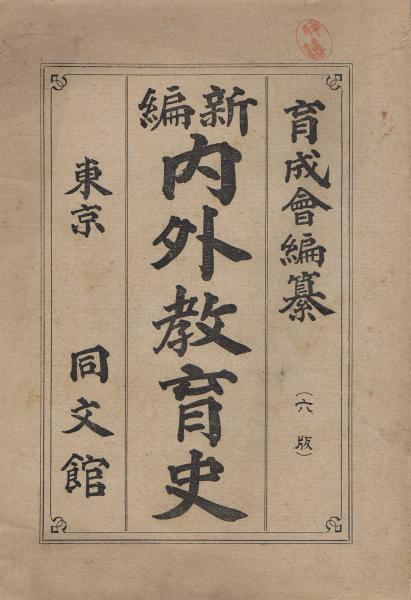 育成會編纂
(六版)
新編
内外教育史
東京 同文館